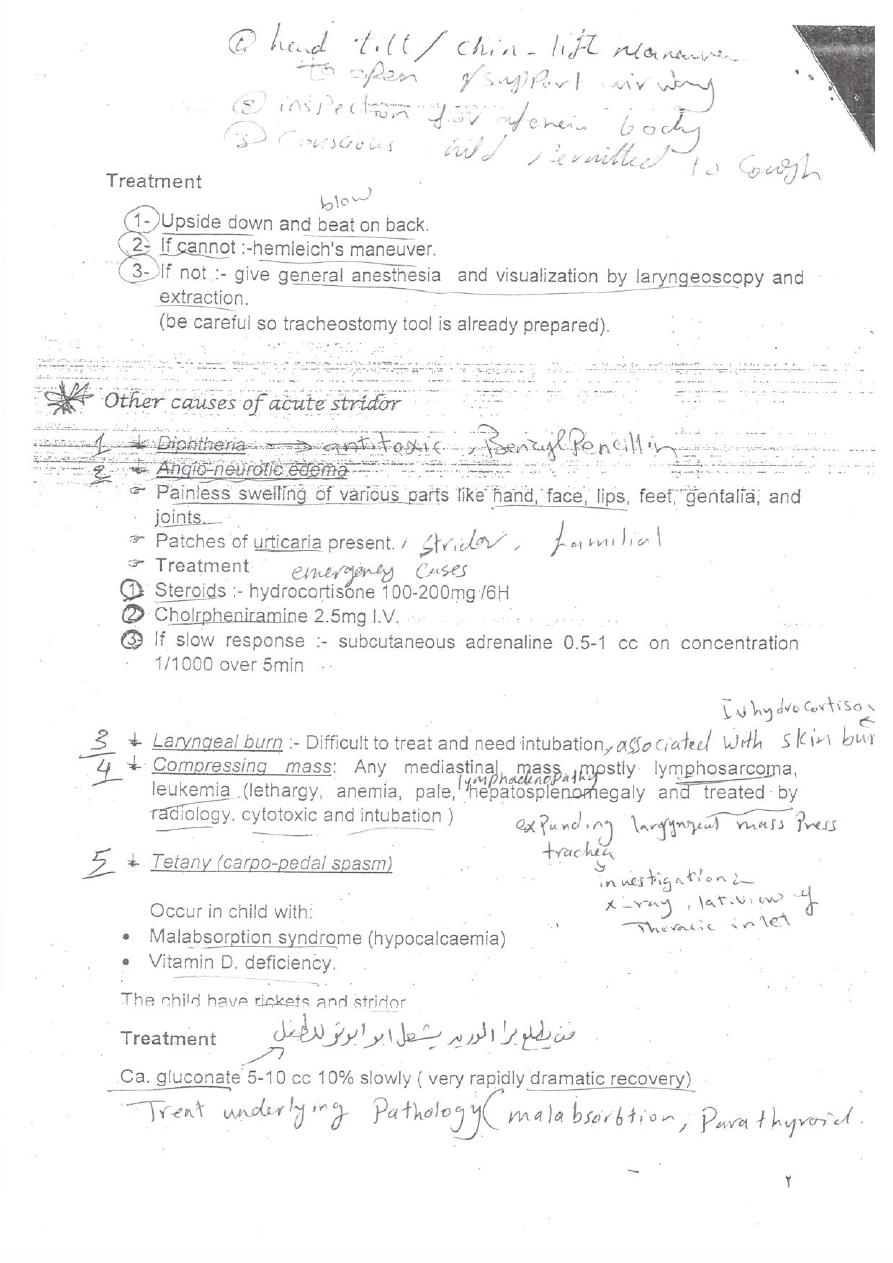 ① head tilt / chin-lift maneuver
to open & support airway
② inspection for foreign body
③ Conscious child permitted to Cough
Treatment
blow
1- Upside down and beat on back.
2- If cannot :-hemleich's maneuver.
3- If not :- give general anesthesia and visualization by laryngeoscopy and
extraction.
(be careful so tracheostomy tool is already prepared).
Other causes of acute stridor
1 Diphtheria → antitoxic, Benzyl Pencillin
2 Angio-neurotic edema
☞ Painless swelling of various parts like hand, face, lips, feet, gentalia, and
joints.
☞ Patches of urticaria present. / stridor, familial
☞ Treatment emergency cases
① Steroids :- hydrocortisone 100-200mg /6H
② Cholrpheniramine 2.5mg I.V.
③ If slow response :- subcutaneous adrenaline 0.5-1 cc on concentration
1/1000 over 5min
Iv hydrocortison
3 Laryngeal burn :- Difficult to treat and need intubation, associated with skin bur
4 Compressing mass: Any mediastinal mass mostly lymphosarcoma,
lymphadenopathy
leukemia (lethargy, anemia, pale, hepatosplenomegaly and treated by
radiology, cytotoxic and intubation )
expanding laryngeal mass Press
trachea
5 Tetany (carpo-pedal spasm)
investigation:-
x-ray, lat.view of
Thoracic inlet
Occur in child with:
• Malabsorption syndrome (hypocalcaemia)
• Vitamin D. deficiency.
The child have rickets and stridor
Treatment
Ca. gluconate 5-10 cc 10% slowly ( very rapidly dramatic recovery)
Treat underlying Pathology (malabsorbtion, Parathyroid.
٢